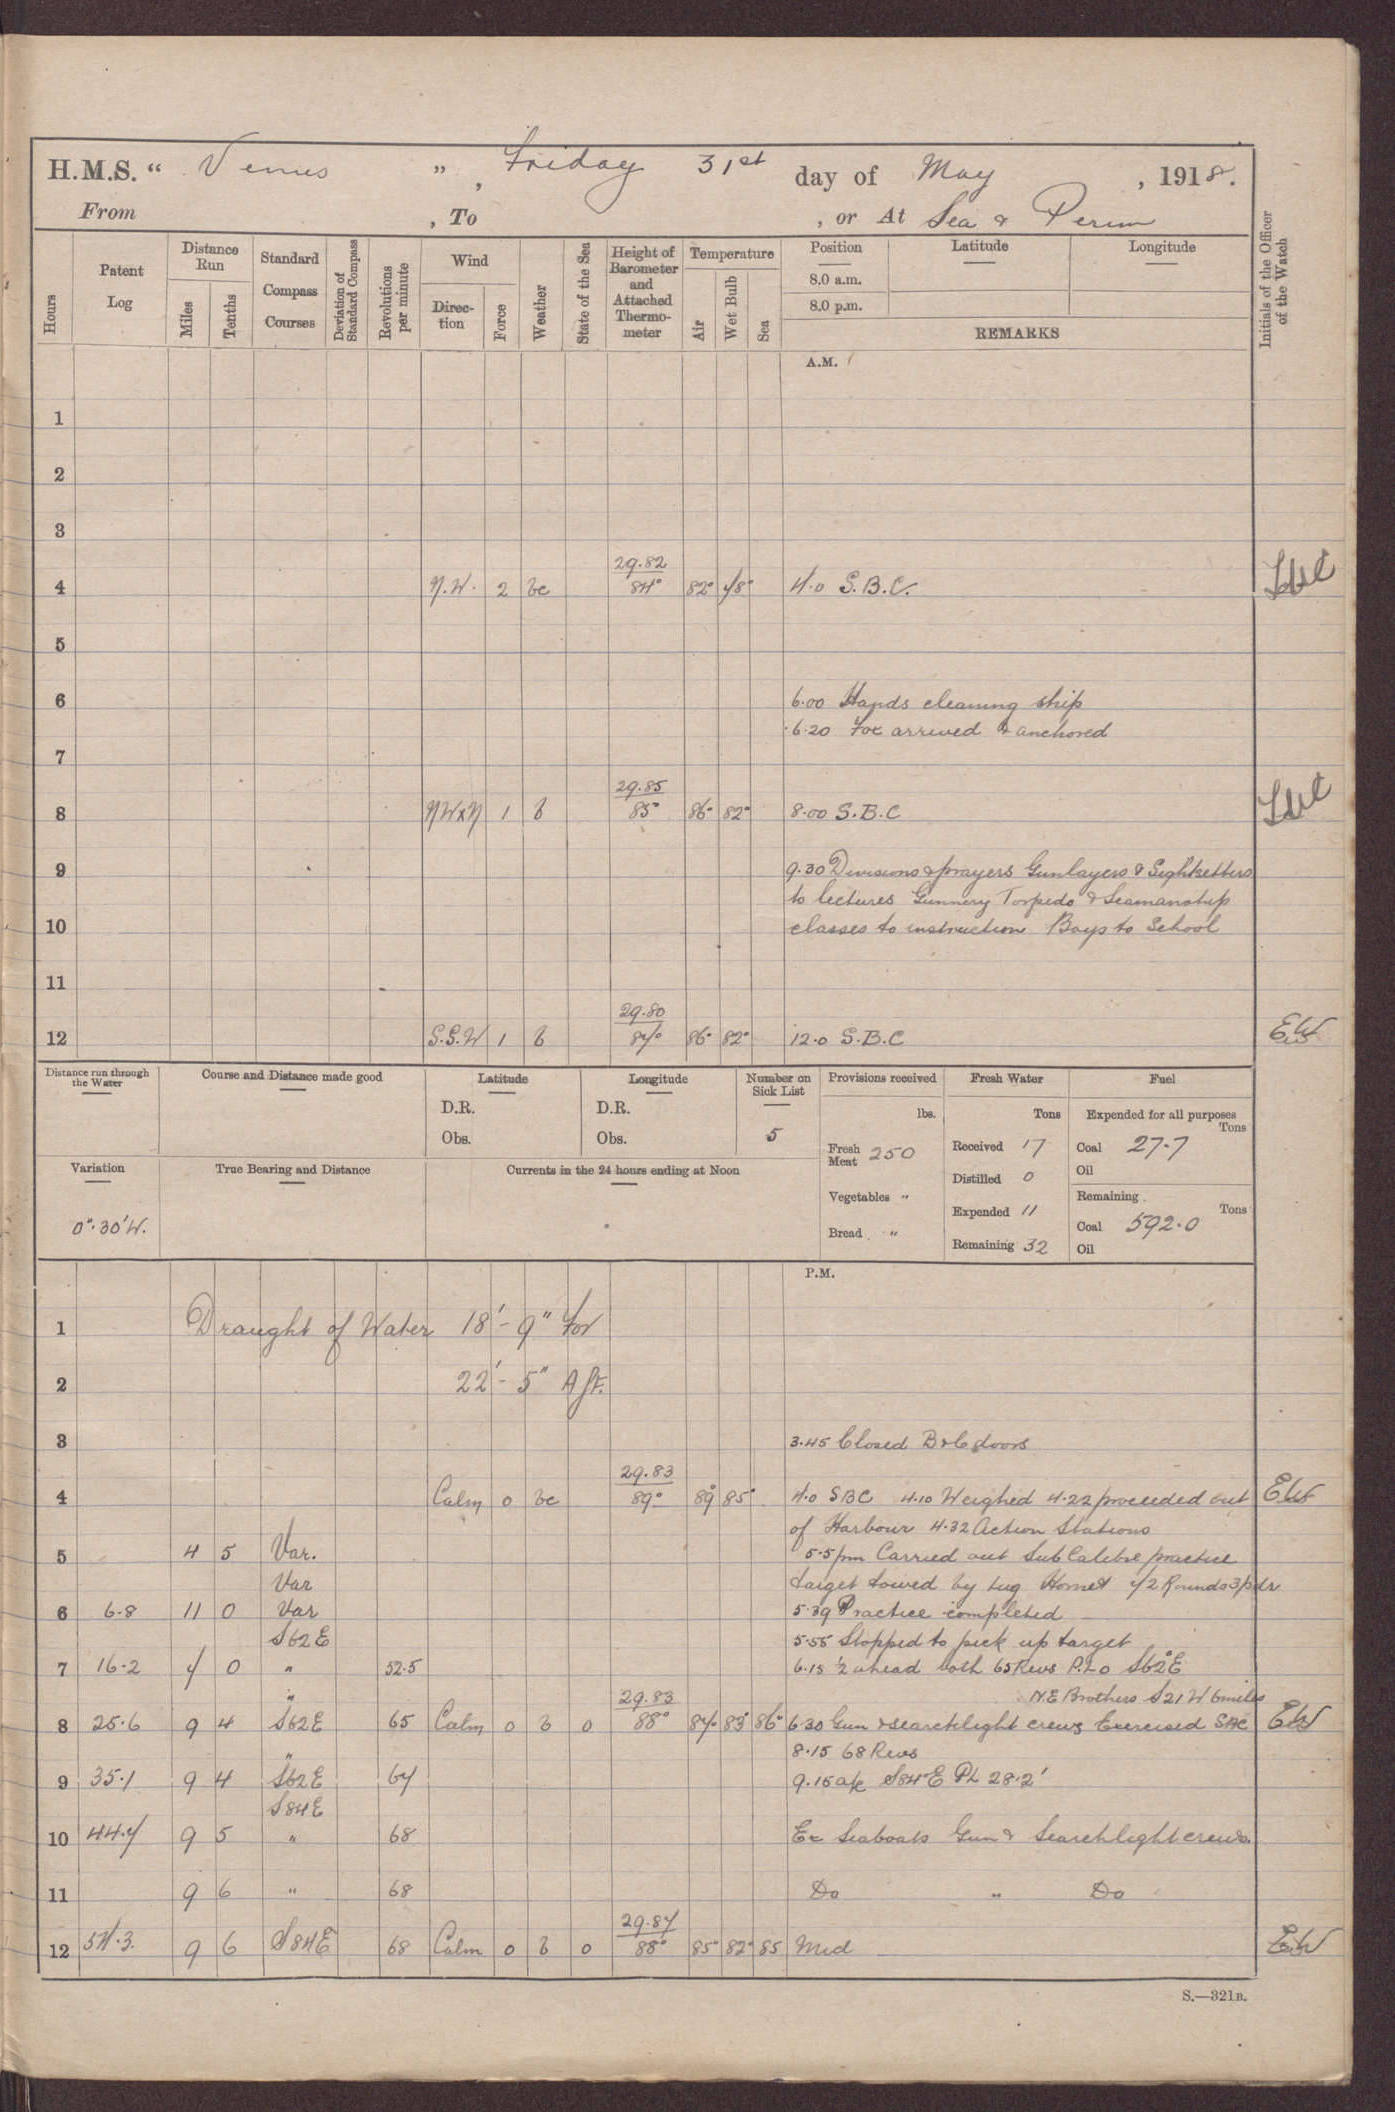 H.M.S. “ Venus ” , Friday 31st day of May , 1918.
From , To , or At Sea & Perim
Hours
Patent Log
Distance Run
Miles
Tenths
Standard Compass Courses
Deviation of Standard Compass
Revolutions per minute
Wind
Direction
Force
Weather
State of the Sea
Height of Barometer and Attached Thermometer
Temperature
Air
Wet Bulb
Sea
Position Latitude Longitude
8.0 a.m.
8.0 p.m.
REMARKS
Initials of the Officer of the Watch
A.M.
1
2
3
29.82
4 N.W. 2 bc 84° 82° 78° 4.0 S.B.C.
5
6 6.00 Hands cleaning ship
6.20 Fox arrived & anchored
7
29.85
8 NWxN 1 b 85° 86° 82° 8.00 S.B.C
9 9.30 Divisions & prayers Gunlayers & Sightsetters
to lectures Gunnery Torpedo & Seamanship
10 classes to instruction Boys to School
11
29.80
12 S.S.W 1 b 87° 86° 82° 12.0 S.B.C EW
Distance run through the Water
Course and Distance made good
Latitude
D.R.
Obs.
Longitude
D.R.
Obs.
Number on Sick List
5
Provisions received
lbs.
Fresh Meat 250
Vegetables "
Bread "
Fresh Water
Tons
Received 17
Distilled 0
Expended 11
Remaining 32
Fuel
Expended for all purposes
Tons
Coal 27.7
Oil
Remaining
Tons
Coal 592.0
Oil
Variation
0°.30'W.
True Bearing and Distance
Currents in the 24 hours ending at Noon
P.M.
1 Draught of Water 18'-9" For
2 22'-5" Aft.
3 3.45 Closed B & C doors
29.83
4 Calm 0 bc 89° 89° 85° 4.0 SBC 4.10 Weighed 4.22 proceeded out EW
of Harbour 4.32 Action Stations
5 4 5 Var. 5.5 pm Carried out Sub Calibre practice
Var target towed by tug Hornet 72 Rounds 3 pdr
6 6.8 11 0 Var 5.39 Practice completed
S62E 5.55 Stopped to pick up target
7 16.2 7 0 " 52.5 6.15 ½ ahead both 65 Revs P.L 0 S62°E
" 29.83 N.E Brothers S21W 6 miles
8 25.6 9 4 S62E 65 Calm 0 b 0 88° 87° 83° 86° 6.30 Gun & searchlight crews Exercised SBC EW
" 8.15 68 Revs
9 35.1 9 4 S62E 67 9.15 a/c S84°E PL 28.2'
S84E
10 44.7 9 5 " 68 Ex Seaboats Gun & Searchlight crews.
11 9 6 " 68 Do " Do
29.87
12 54.3. 9 6 S84E 68 Calm 0 b 0 88° 85° 82° 85 Mid EW
S.—321B.